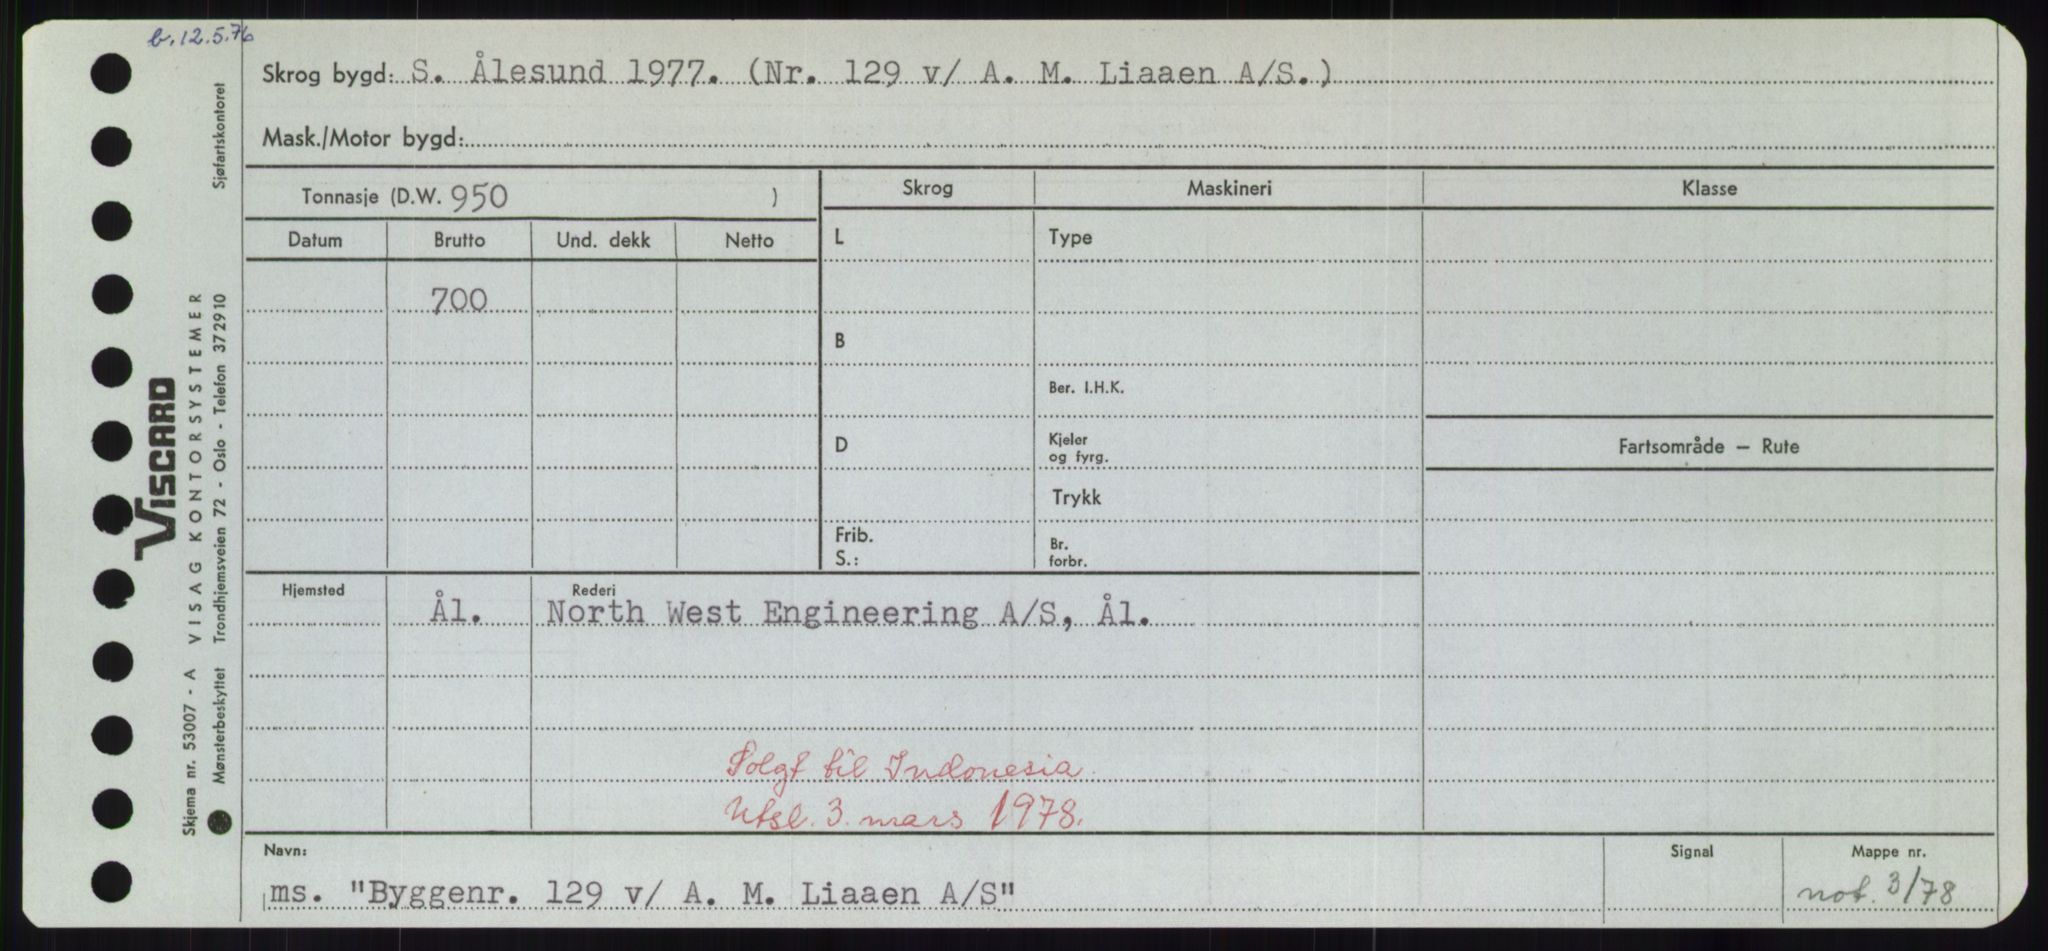 b. 12.5.76
Skrog bygd: S. Ålesund 1977. (Nr. 129 v/ A. M. Liaaen A/S.)
Mask./Motor bygd:
Tonnasje (D.W. 950 )
Skrog Maskineri Klasse
Datum Brutto Und. dekk Netto
L Type
700
B
Ber. I.H.K.
D Kjeler
og fyrg.
Fartsområde — Rute
Trykk
Frib.
S.:
Br.
forbr.
Hjemsted Rederi
Ål. North West Engineering A/S, Ål.
Solgt til Indonesia.
Utsl. 3. mars 1978.
Navn: Signal Mappe nr.
ms. "Byggenr. 129 v/ A. M. Liaaen A/S" not. 3/78
VISCARD
Skjema nr. 53007 - A VISAG KONTORSYSTEMER
Mønsterbeskyttet Trondhjemsveien 72 - Oslo - Telefon 372910 Sjøfartskontoret